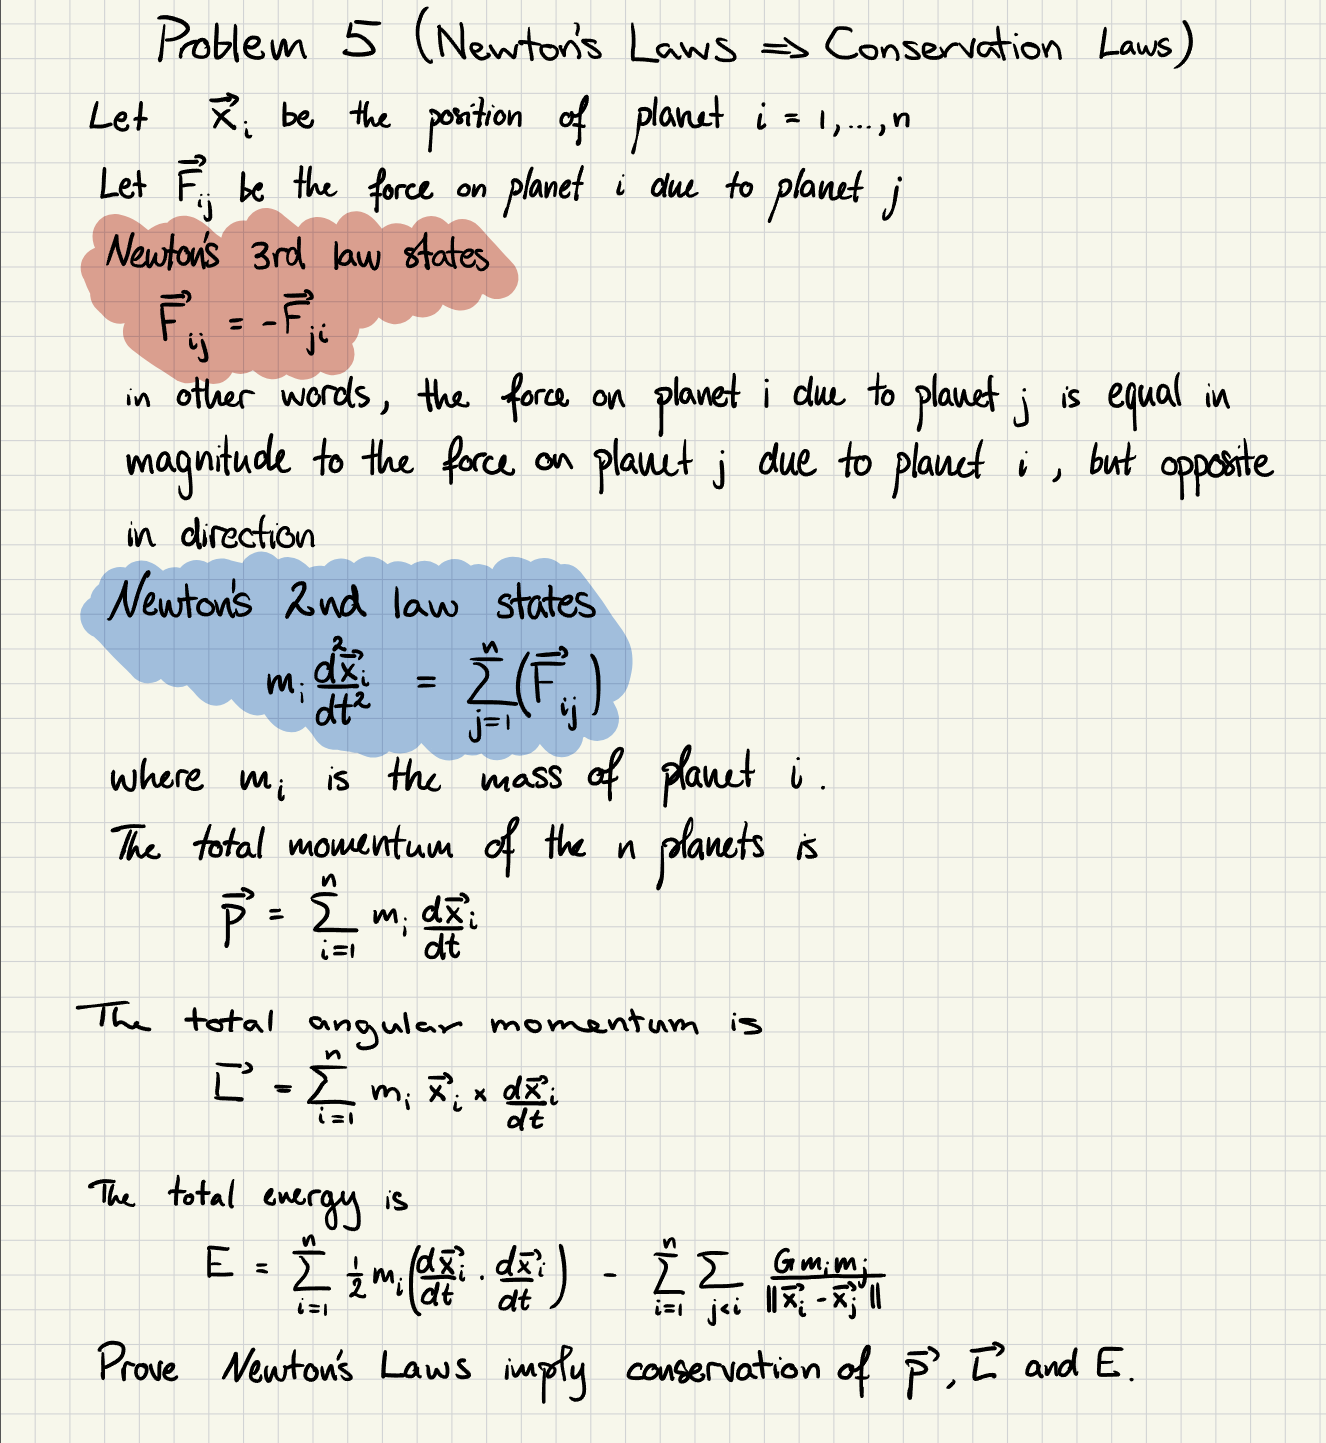 Problem 5 (Newton's Laws ⇒ Conservation Laws)
Let $\vec{x}_i$ be the position of planet i = 1,...,n
Let $\vec{F}_{ij}$ be the force on planet i due to planet j
Newton's 3rd law states
$\vec{F}_{ij} = -\vec{F}_{ji}$
in other words, the force on planet i due to planet j is equal in
magnitude to the force on planet j due to planet i, but opposite
in direction
Newton's 2nd law states
$m_i \frac{d^2\vec{x}_i}{dt^2} = \sum_{j=1}^{n} (\vec{F}_{ij})$
where $m_i$ is the mass of planet i.
The total momentum of the n planets is
$\vec{P} = \sum_{i=1}^{n} m_i \frac{d\vec{x}_i}{dt}$
The total angular momentum is
$\vec{L} = \sum_{i=1}^{n} m_i \vec{x}_i \times \frac{d\vec{x}_i}{dt}$
The total energy is
$E = \sum_{i=1}^{n} \frac{1}{2} m_i \left(\frac{d\vec{x}_i}{dt} \cdot \frac{d\vec{x}_i}{dt}\right) - \sum_{i=1}^{n} \sum_{j<i} \frac{G m_i m_j}{\|\vec{x}_i - \vec{x}_j\|}$
Prove Newton's Laws imply conservation of $\vec{P}$, $\vec{L}$ and E.